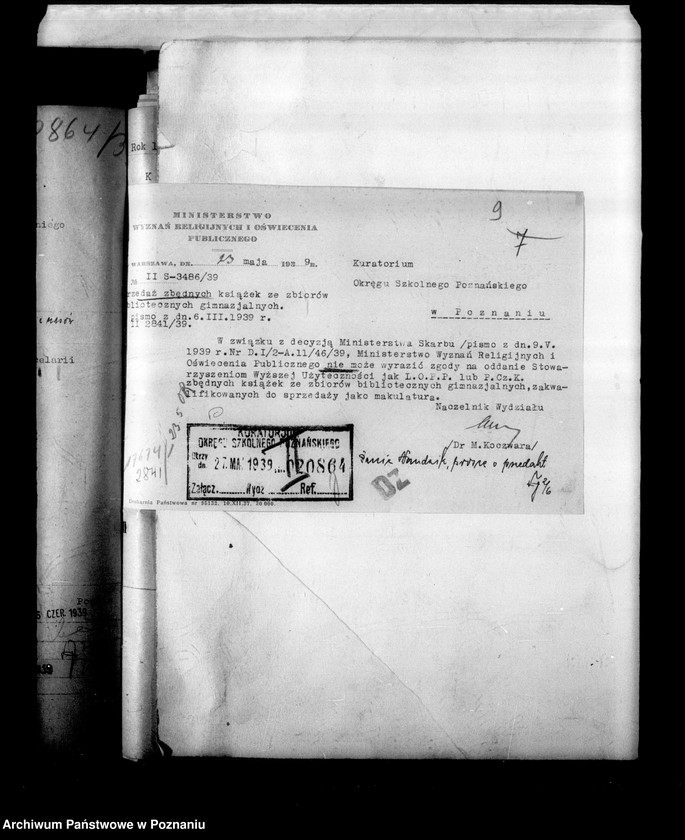 0864/3
Rok 1
K
niógo
elarii
5 CZER. 1939
9
7
MINISTERSTWO
WYZNAŃ RELIGIJNYCH I OŚWIECENIA
PUBLICZNEGO
WARSZAWA, DN. 23 maja 193 9 R.
№ II S-3486/39
rzedaż zbędnych książek ze zbiorów
bliotecznych gimnazjalnych.
pismo z dn.6.III.1939 r.
II 2841/39.
Kuratorium
Okręgu Szkolnego Poznańskiego
w Poznaniu
W związku z decyzją Ministerstwa Skarbu /pismo z dn.9.V.
1939 r.Nr D.I/2-A.11/46/39, Ministerstwo Wyznań Religijnych i
Oświecenia Publicznego nie może wyrazić zgody na oddanie Stowa-
rzyszeniom Wyższej Użyteczności jak L.O.P.P. lub P.Cz.K.
zbędnych książek ze zbiorów bibliotecznych gimnazjalnych, zakwa-
lifikowanych do sprzedaży jako makulatura.
Naczelnik Wydziału
/Dr M.Koczwara/
KURATORJUM
OKRĘGU SZKOLNEGO POZNAŃSKIEGO
Otrzy
dn. 27. MAJ 1939 020864
Załącz. Wydz Ref.
2841
DZ
Drukarnia Państwowa nr 55122. 10.XII.37. 30 000.
Archiwum Państwowe w Poznaniu